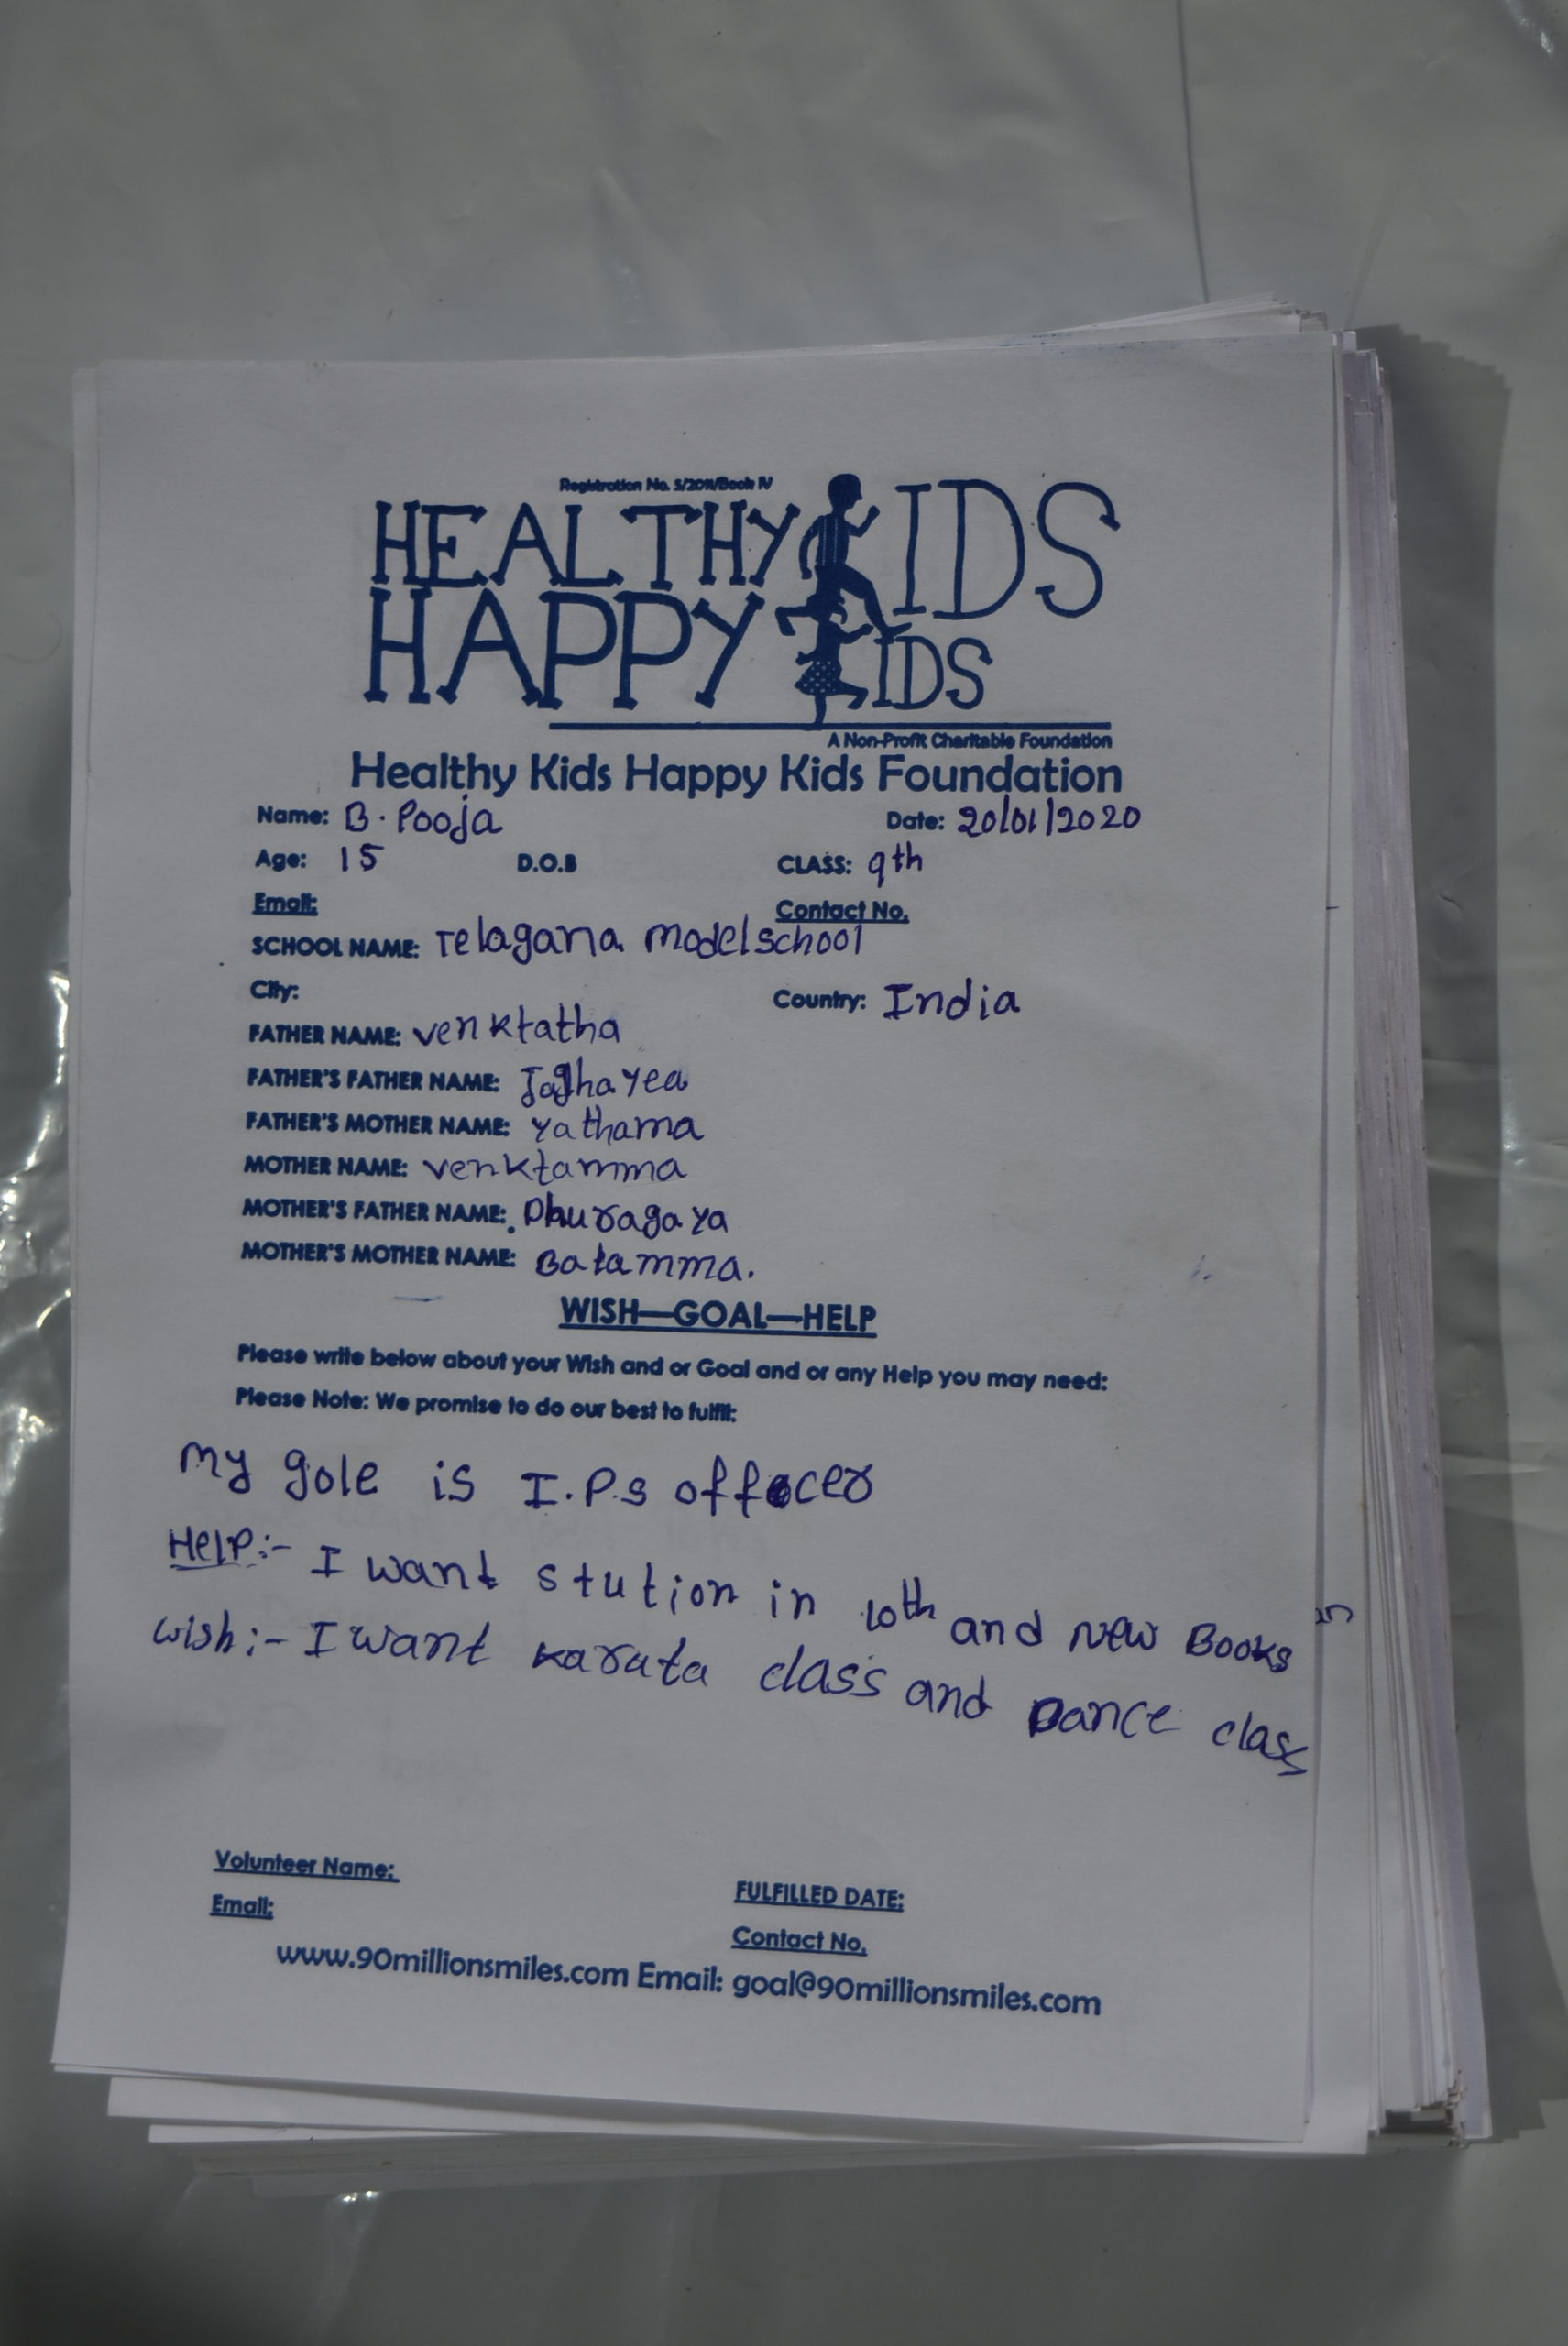 Registration No. 5/2011/Book IV
HEALTHY KIDS
HAPPY KIDS
A Non-Profit Charitable Foundation
Healthy Kids Happy Kids Foundation
Name: B. Pooja Date: 20/01/2020
Age: 15 D.O.B CLASS: 9th
Email: Contact No.
SCHOOL NAME: Telagana model school
City: Country: India
FATHER NAME: venktatha
FATHER'S FATHER NAME:
FATHER'S MOTHER NAME: yathama
MOTHER NAME: venktamma
MOTHER'S FATHER NAME: Dhuragaya
MOTHER'S MOTHER NAME: Batamma.
WISH—GOAL—HELP
Please write below about your Wish and or Goal and or any Help you may need:
Please Note: We promise to do our best to fulfil:
my gole is I.P.S officer
Help:- I want stution in 10th and new Books
wish:- I want karata class and Dance class
Volunteer Name: FULFILLED DATE:
Email: Contact No.
www.90millionsmiles.com Email: goal@90millionsmiles.com